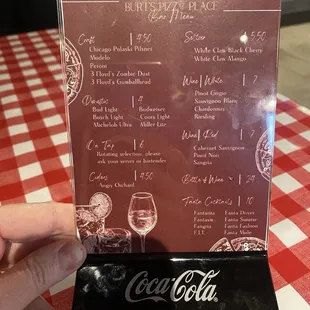 BURT'S PIZZA PLACE
Bar Menu
Craft 5.50
Chicago Pulaski Pilsner
Modelo
Peroni
3 Floyd's Zombie Dust
3 Floyd's Gumballhead
Domestic 4
Bud Light Budweiser
Busch Light Coors Light
Michelob Ultra Miller Lite
On Tap 6
Rotating selection, please
ask your server or bartender
Ciders
Angry Orchard
Seltzer 5.50
White Claw Black Cherry
White Claw Mango
Wine | White 7
Pinot Grigio
Sauvignon Blanc
Chardonnay
Riesling
Wine | Red 7
Cabernet Sauvignon
Pinot Noir
Sangria
Bottle of Wine 29
Fanta Cocktails 10
Fantasia Fanta Dream
Fantasm Fanta Sunrise
Fangria Fanta Fashion
Fanta Mule
Coca-Cola